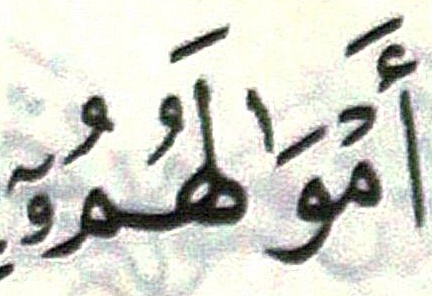 أَمْوَٰلَهُمُۥٓ